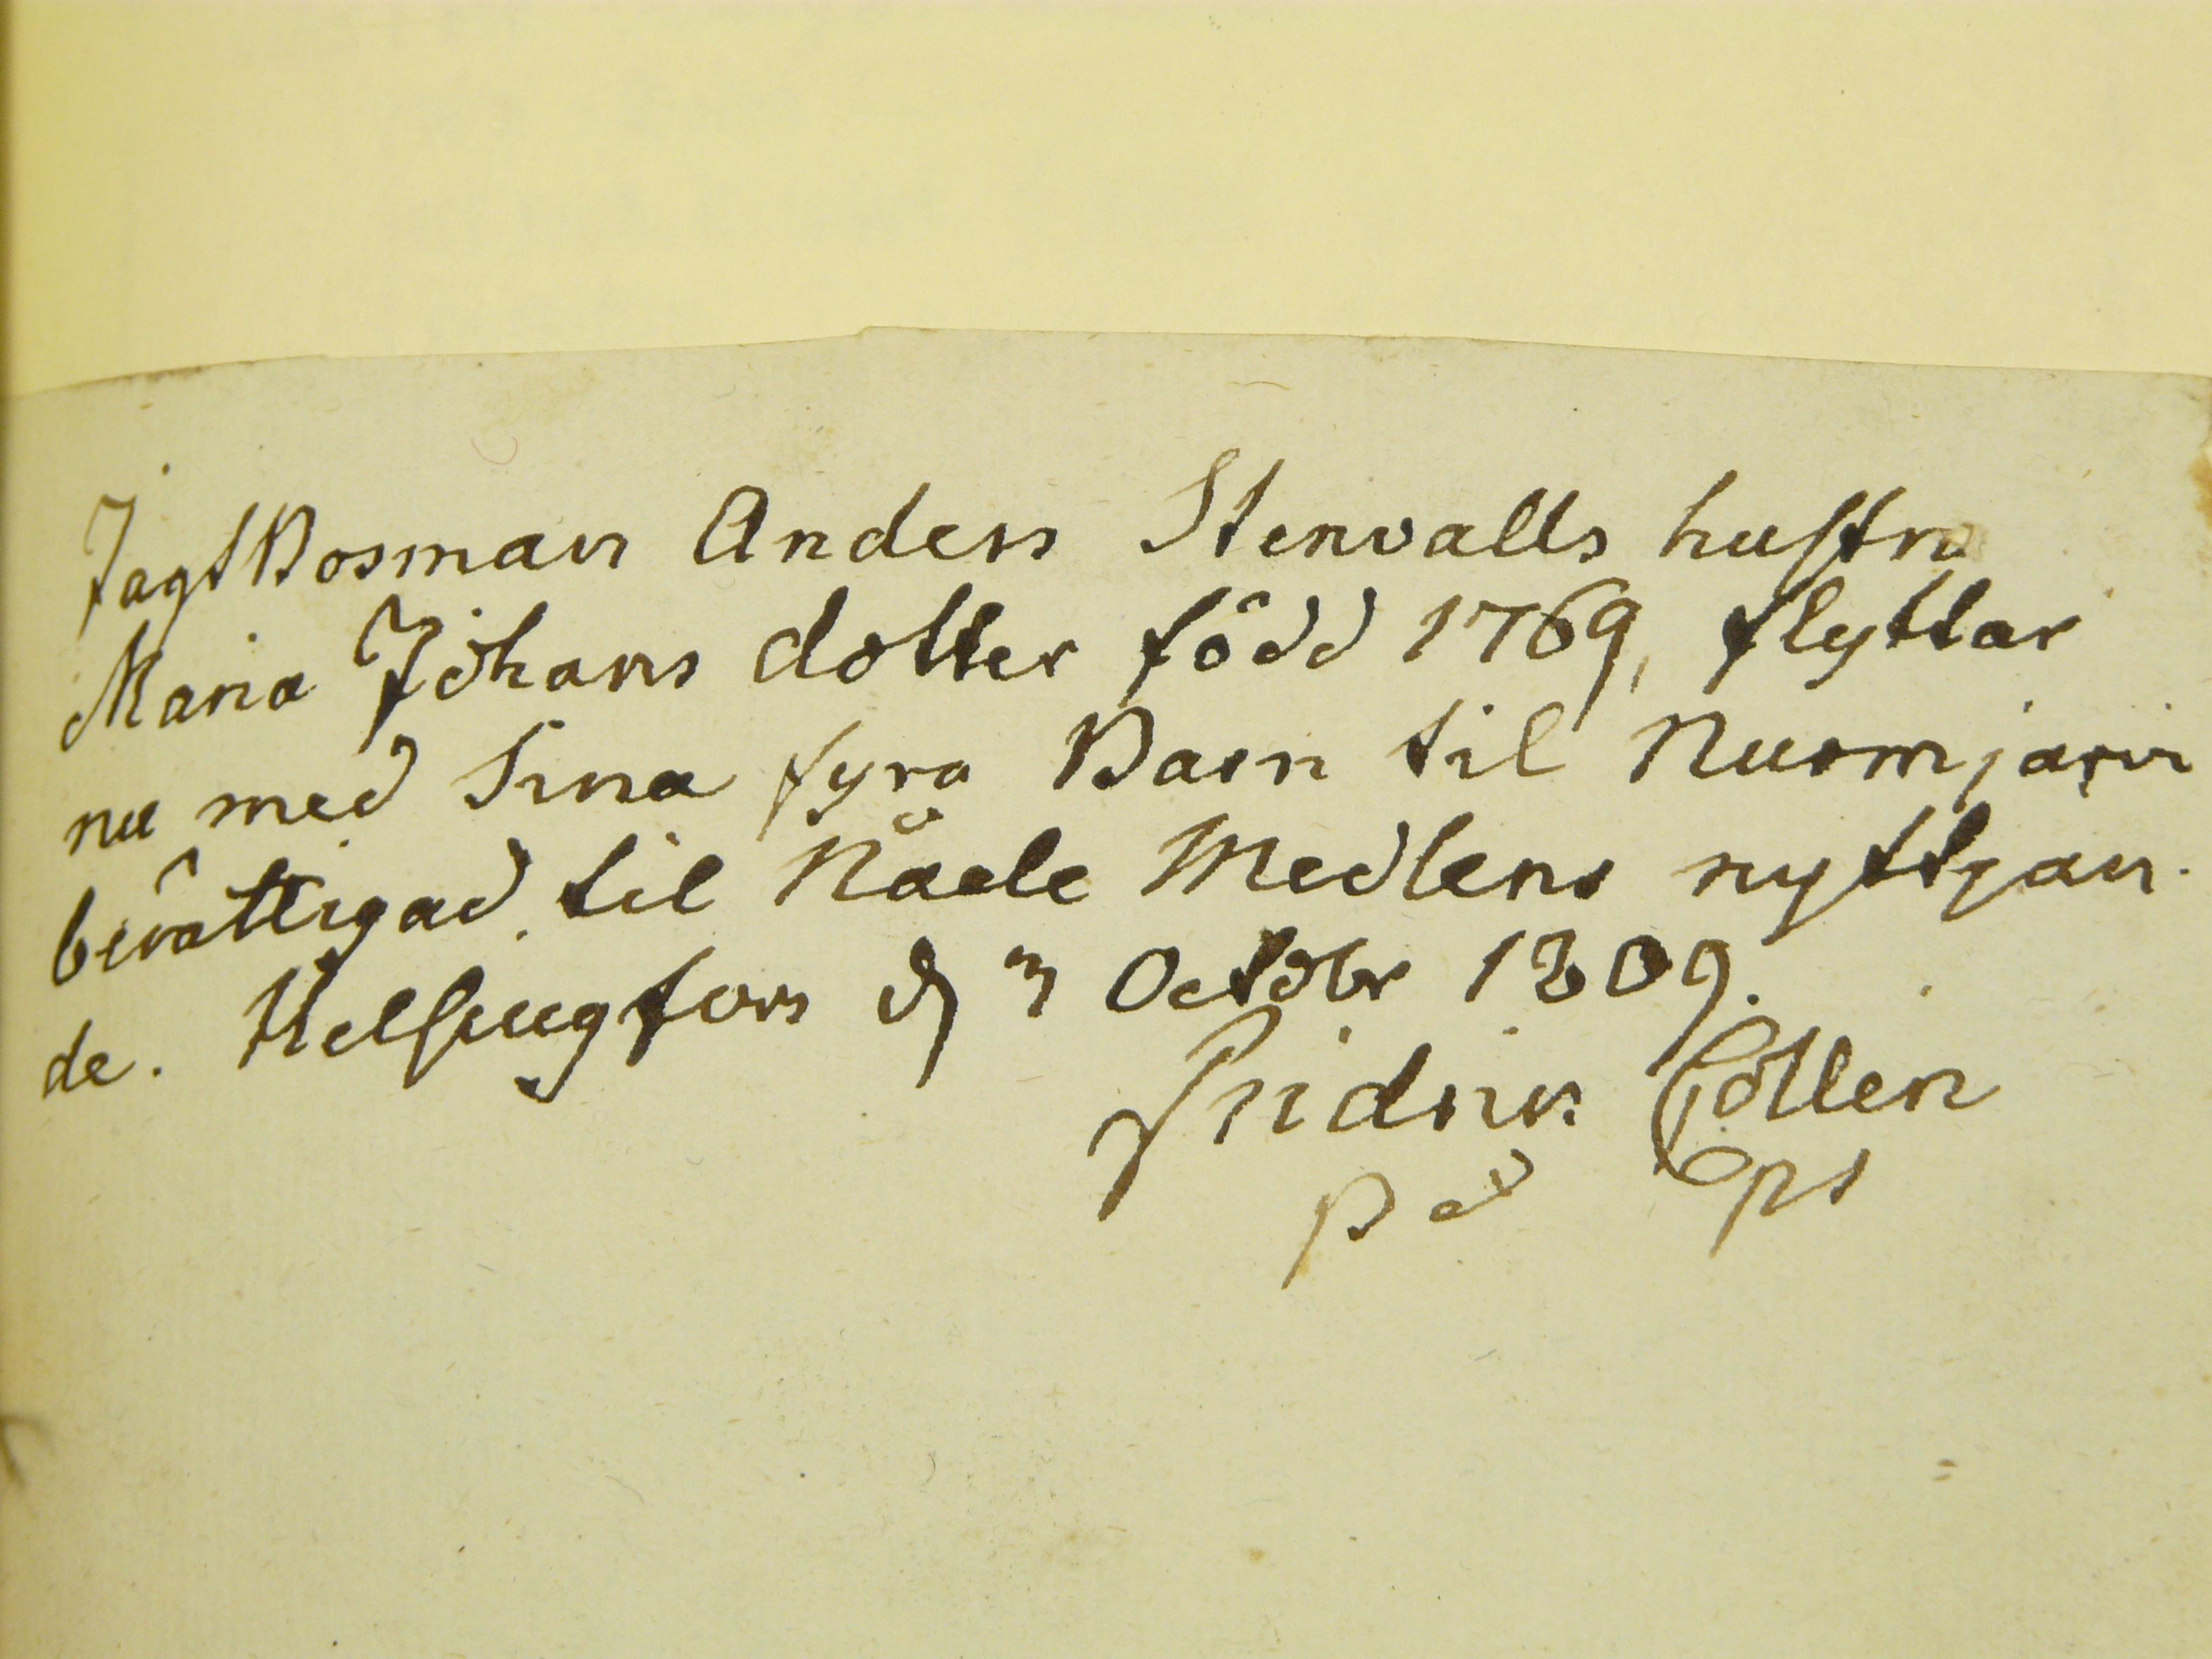 Jagt Bosman Anders Stenvalls hustru
Maria Johans dotter född 1769, flyttar
nu med Sina fyra Barn til Nurmjärvi
berättigad til Nåde Medlens nyttjan-
de. Helsingfors d 3 Octobr 1809.
Fridric Collen
Past